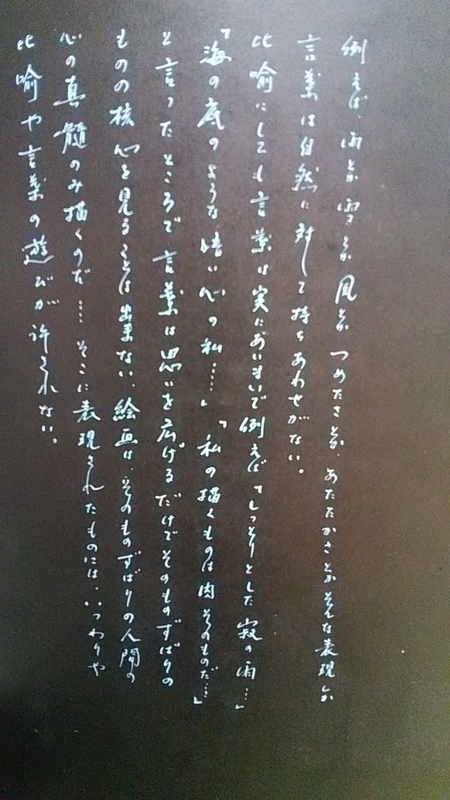 例えば、雨とか雪とか風とか つめたさとか、あたたかさとかそんな表現しか
言葉は自然に対して持ちあわせがない。
比喩にしても言葉は実にあいまいで例えば「しっとりとした寂の雨…」
「海の底のような暗い心の私……」「私の描くものは肉そのものだ…」
と言ったところで言葉は思いを広げるだけでそのものずばりの
ものの核心を見ることは出来ない、絵画は、そのものずばりの人間の
心の真髄のみ描くのだ……そこに表現されたものには、いつわりや
比喩や言葉の遊びが許されない。